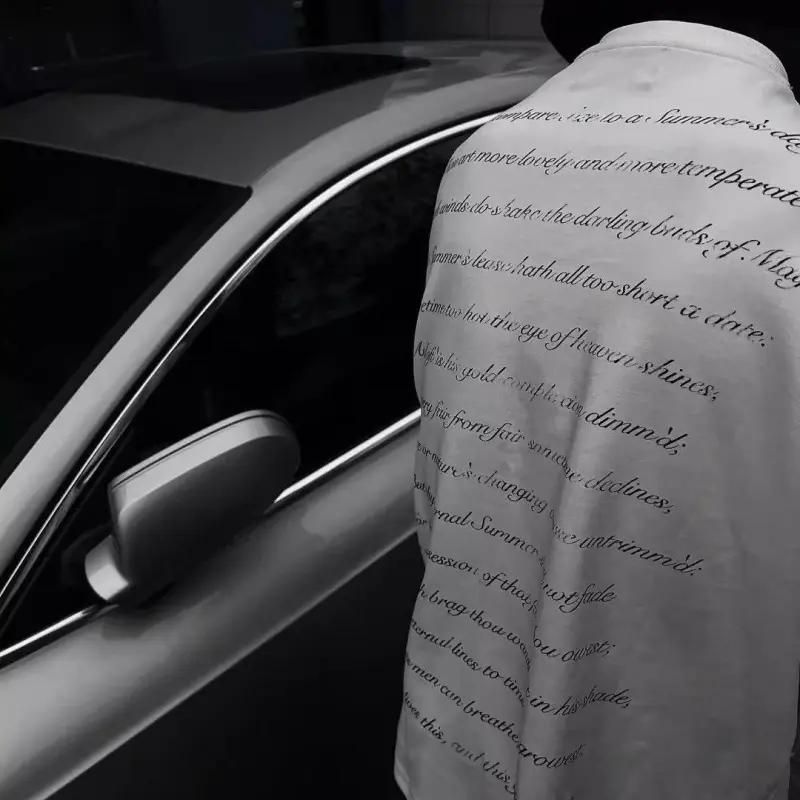 compare to a Summer's day
art more lovely and more temperate
winds do shake the darling buds of May
Summer's lease hath all too short a date:
too hot the eye of heaven shines,
is his gold complexion dimm'd;
fair from fair sometime declines,
or nature's changing untrimm'd:
Summer not fade
of that owest;
brag thou
lines to time in his shade,
men can breathe
this, and this